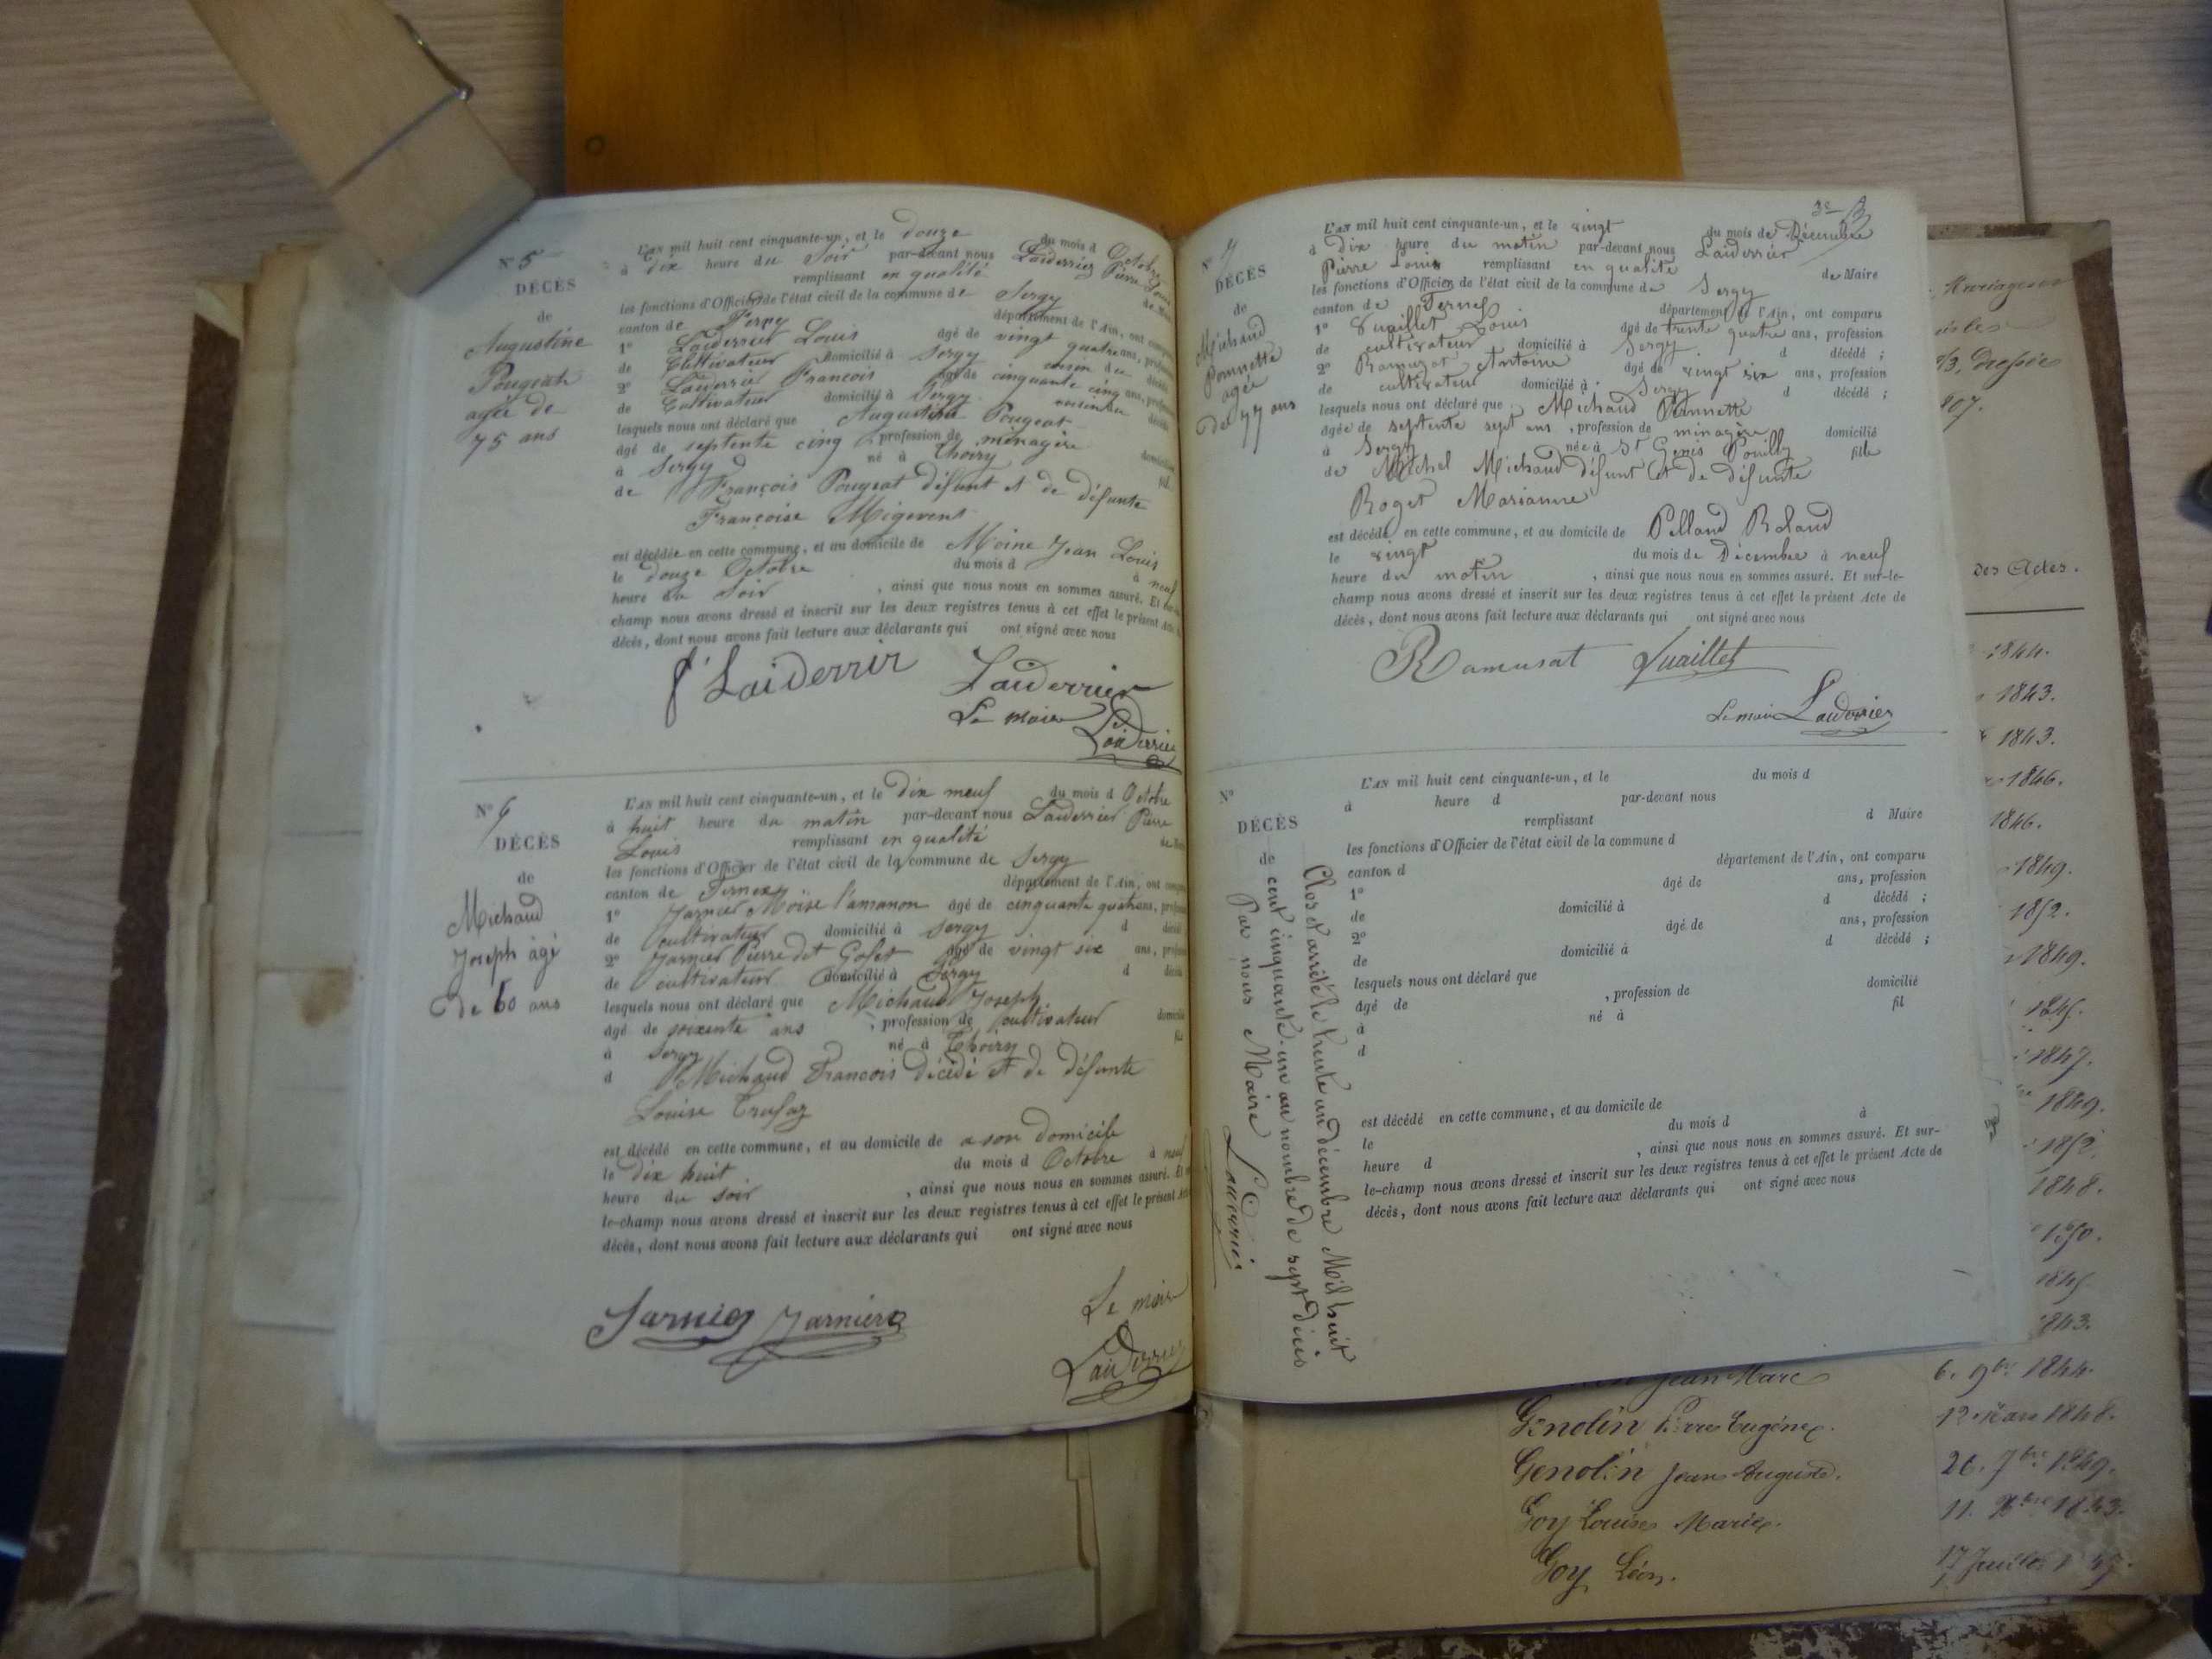 N° 5
DÉCÈS
de
Augustine
Pougeat
agée de
75 ans
L'AN mil huit cent cinquante-un, et le douze du mois d Octobre
à dix heure du soir par-devant nous Laiderrier Pierre Louis
remplissant en qualité de Maire
les fonctions d'Officier de l'état civil de la commune de Sergy
canton de Ferney département de l'Ain, ont comparu
1° Laiderrier Louis âgé de vingt quatre ans, profession
de Cultivateur domicilié à Sergy voisin du décédé
2° Laiderrier François âgé de cinquante cinq ans, profession
de Cultivateur domicilié à Sergy décédé
lesquels nous ont déclaré que Augustine Pougeat
âgé de septente cinq , profession de ménagère domicilié
à Sergy né à Thoiry fil
de François Pougeat défunt et de défunte
Françoise
est décédée en cette commune, et au domicile de Moine Jean Louis
le douze Octobre du mois d à neuf
heure du soir , ainsi que nous nous en sommes assuré. Et sur-le-
champ nous avons dressé et inscrit sur les deux registres tenus à cet effet le présent Acte de
décès, dont nous avons fait lecture aux déclarants qui ont signé avec nous
f Laiderrir Laiderrier
Le maire
Laiderrier
N° 6
DÉCÈS
de
Michaud
Joseph âgé
de 60 ans
L'AN mil huit cent cinquante-un, et le dix neuf du mois d Octobre
à huit heure du matin par-devant nous Laiderrier Pierre
Louis remplissant en qualité de Maire
les fonctions d'Officier de l'état civil de la commune de Sergy
canton de Fernex département de l'Ain, ont comparu
1° Jarnier Moïse l'amanon âgé de cinquante quatre ans, profession
de cultivateur domicilié à Sergy d décédé
2° Jarnier Pierre dit Golet âgé de vingt six ans, profession
de cultivateur domicilié à Sergy d décédé
lesquels nous ont déclaré que Michaud Joseph
âgé de soixente ans , profession de cultivateur domicilié
à Sergy né à Thoiry fil
d Michaud François décédé et de défunte
Louise
est décédé en cette commune, et au domicile de a son domicile
le dix huit du mois d Octobre à neuf
heure du soir , ainsi que nous nous en sommes assuré. Et sur-
le-champ nous avons dressé et inscrit sur les deux registres tenus à cet effet le présent Acte de
décès, dont nous avons fait lecture aux déclarants qui ont signé avec nous
Jarnier Jarnier
Le maire
Laiderrier
N° 7
DÉCÈS
de
Michaud
Pernnette
agée
de 77 ans
L'AN mil huit cent cinquante-un, et le vingt du mois de Décembre
à dix heure du matin par-devant nous Laiderrier
Pierre Louis remplissant en qualité de Maire
les fonctions d'Officier de l'état civil de la commune de Sergy
canton de Fernex département de l'Ain, ont comparu
1° Louis âgé de trente quatre ans, profession
de cultivateur domicilié à Sergy d décédé ;
2° Ramuzat Antoine âgé de vingt six ans, profession
de cultivateur domicilié à Sergy d décédé ;
lesquels nous ont déclaré que Michaud Pernnette
âgée de septente sept ans , profession de ménagère domicilié
à Sergy née à St Genis Pouilly fille
de Michel Michaud défunt et de défunte
Roget Marianne
est décédé en cette commune, et au domicile de Pelland Roland
le vingt du mois de Décembre à neuf
heure du matin , ainsi que nous nous en sommes assuré. Et sur-le-
champ nous avons dressé et inscrit sur les deux registres tenus à cet effet le présent Acte de
décès, dont nous avons fait lecture aux déclarants qui ont signé avec nous
Ramusat
Le maire Laiderrier
N°
DÉCÈS
de
L'AN mil huit cent cinquante-un, et le du mois d
à heure d par-devant nous
remplissant d Maire
les fonctions d'Officier de l'état civil de la commune d
canton d département de l'Ain, ont comparu
1° âgé de ans, profession
de domicilié à d décédé ;
2° âgé de ans, profession
de domicilié à d décédé ;
lesquels nous ont déclaré que
âgé de , profession de domicilié
à né à fil
d
est décédé en cette commune, et au domicile de
le du mois d à
heure d , ainsi que nous nous en sommes assuré. Et sur-
le-champ nous avons dressé et inscrit sur les deux registres tenus à cet effet le présent Acte de
décès, dont nous avons fait lecture aux déclarants qui ont signé avec nous
Clos et arrêté le trente un décembre Mil huit
cent cinquante-un au nombre de sept décès
Par nous Maire Laiderrier
Mariages
1/3, dressée
807.
des Actes.
1844.
1843.
1843.
1846.
1846.
1849.
1852.
1849.
1845.
1847.
1849.
1852.
1848.
1850.
1845
1843.
Jean Marc 6. 9bre 1844.
Genolin Pierre Eugène. 12 Mars 1848.
Genolin Jean Auguste. 26. 7bre 1849.
Goy Louise Marie. 11. 1843.
Goy Léon. 17 Juillet